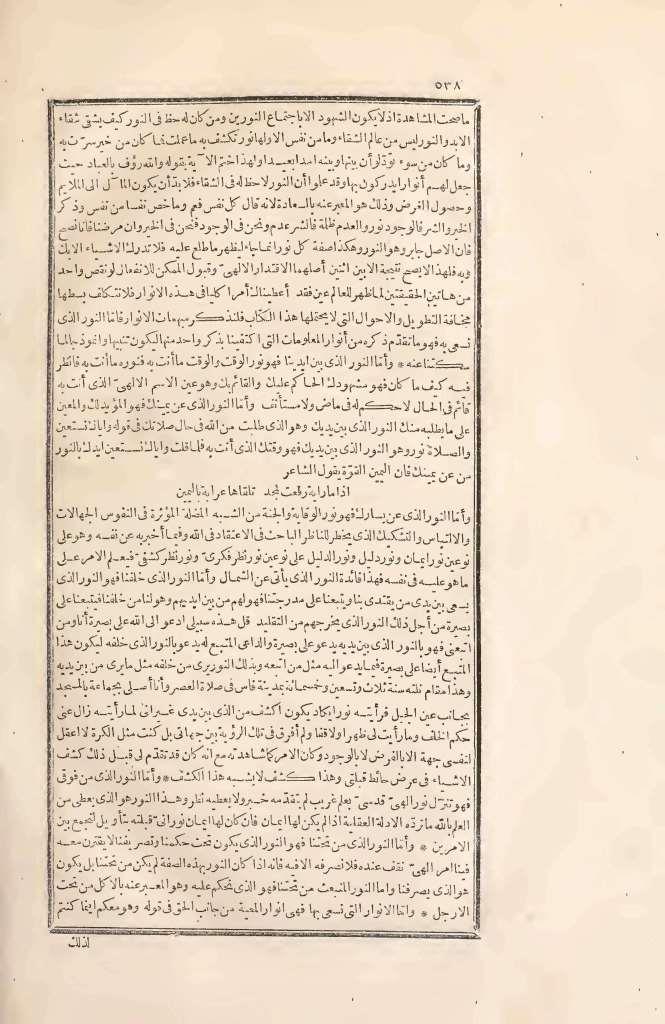 ٥٣٨
ما صحت المشاهدة اذ لا يكون الشهود الا باجتماع النورين ومن كان له حظ فى النور كيف يشقى شقاء
الابد والنور ليس من عالم الشقاء وما من نفس الا ولها نور تكشف به ما عملت فما كان من خير سرت به
وما كان من سوء تودّ لو أن بينها وبينه امدا بعيدا ولهذا ختم الآية بقوله والله رؤف بالعباد حيث
جعل لهم أنوارا يدركون بها وقد علوا أن النور لا حظ له فى الشقاء فلا بدّ أن يكون المآل الى الملايم
وحصول الغرض وذلك هو المعبر عنه بالسعادة لانه قال كل نفس فعم وما خص نفسا من نفس وذكر
الخير والشر فالوجود نور والعدم ظلمة فالشر عدم ونحن فى الوجود فنحن فى الخير وان مرضنا فانا نصح
فان الاصل جابر وهو النور وهكذا صفة كل نور انما جاء ليظهر ما طلع عليه فلا تدرك الاشياء الا بك
وبه فلهذا لا يصح نتيجة الا بين اثنين أصلهما الاقتدار الالهىّ وقبول الممكن للانفعال لو نقص واحد
من هاتين الحقيقتين لما ظهر للعالم عين فقد أعطيناك أمرا كليا فى هذه الانوار فلا نتكلف بسطها
مخافة التطويل والاحوال التى لا يحتملها هذا الكتاب فلنذكر مبهمات الانوار فامّا النور الذى
نسعى به فهو ما تقدّم ذكره من أنوار المعلومات التى اكتفينا بذكر واحد منها ليكون تنبيها وانموذجا لما
سكتنا عنه * وأمّا النور الذى بين ايدينا فهو نور الوقت والوقت ما أنت به فنوره ما أنت به فانظر
فيه كيف ما كان فهو مشهودك الحاكم عليك والقائم بك وهو عين الاسم الالهىّ الذى أنت به
قائم فى الحال لا حكم له فى ماض ولا مستأنف وأمّا النور الذى عن يمينك فهو المؤيد لك والمعين
على ما يطلبه منك النور الذى بين يديك وهو الذى طلبت من الله فى حال صلاتك فى قوله واياك نستعين
والصلاة نور وهو النور الذى بين يديك فهو وقتك الذى أنت به فلما قلت واياك نستعين ايدك بالنور
من عن يمينك فان اليمين القوّة يقول الشاعر
اذا ما راية رفعت لمجد تلقاها عرابة باليمين
وأمّا النور الذى عن يسارك فهو نور الوقاية والجنة من الشبه المضلة المؤثرة فى النفوس الجهالات
والالتباس والتشكيك الذى يخطر للناظر الباحث فى الاعتقاد فى الله وفيما أخبر به عن نفسه وهو على
نوعين نور ايمان ونور دليل ونور الدليل على نوعين نور نظر فكرىّ ونور نظر كشفى فيعلم الامر على
ما هو عليه فى نفسه فهذا فائدة النور الذى يأتى عن الشمال وأمّا النور الذى خلفنا فهو النور الذى
يسعى بين يدى من يقتدى بنا ويتبعنا على مدرجتنا فهو لهم من بين ايديهم وهو لنا من خلفنا فيتبعنا على
بصيرة من أجل ذلك النور الذى يخرجهم من التقليد قل هذه سبيلى ادعو الى الله على بصيرة أنا ومن
اتبعنى فهو بالنور الذى بين يديه يدعو على بصيرة والداعى المتبع له يدعو بالنور الذى خلفه ليكون هذا
المتبع أيضا على بصيرة فيما يدعو اليه مثل من اتبعه وبذلك النور يرى من خلفه مثل ما يرى من بين يديه
وهذا مقام نلته سنة ثلاث وتسعين وخمسمائة بمدينة فاس فى صلاة العصر وأنا أصلى بجماعة بالمسجد
بجانب عين الخيل فرأيته نورا يكاد يكون اكشف من الذى بين يدى غير انى لما رأيته زال عنى
حكم الخلف وما رأيت لى ظهرا ولا قفا ولم أفرق فى تلك الرؤية بين جهاتى بل كنت مثل الكرة لا اعقل
لنفسى جهة الا بالفرض لا بالوجود وكان الامر كما شاهدته مع انه كان قد تقدّم لى قبل ذلك كشف
الاشياء فى عرض حائط قبلتى وهذا كشف لا يشبه هذا الكشف * وأمّا النور الذى من فوقى
فهو تنزل نور الهىّ قدسىّ بعلم غريب لم يتقدّمه خبر ولا يعطيه نظر وهذا النور هو الذى يعطى من
العلم بالله ما تردّه الادلة العقلية اذا لم يكن لها ايمان فان كان لها ايمان نورانى قبلته بتأويل لتجمع بين
الامرين * وأمّا النور الذى من تحتنا فهو النور الذى يكون تحت حكمنا وتصريفنا لا يقترن معه
فينا امر الهىّ نقف عنده فلا نصرفه الا فيه فانه اذا كان النور بهذه الصفة لم يكن من تحتنا بل يكون
هو الذى يصرفنا وامّا النور المنبعث من تحتنا فهو الذى نحكم عليه وهو المعبر عنه بالاكل من تحت
الارجل * وأمّا الانوار التى نسعى بها فهى انوار المعية من جانب الحق فى قوله وهو معكم اينما كنتم
اذلك